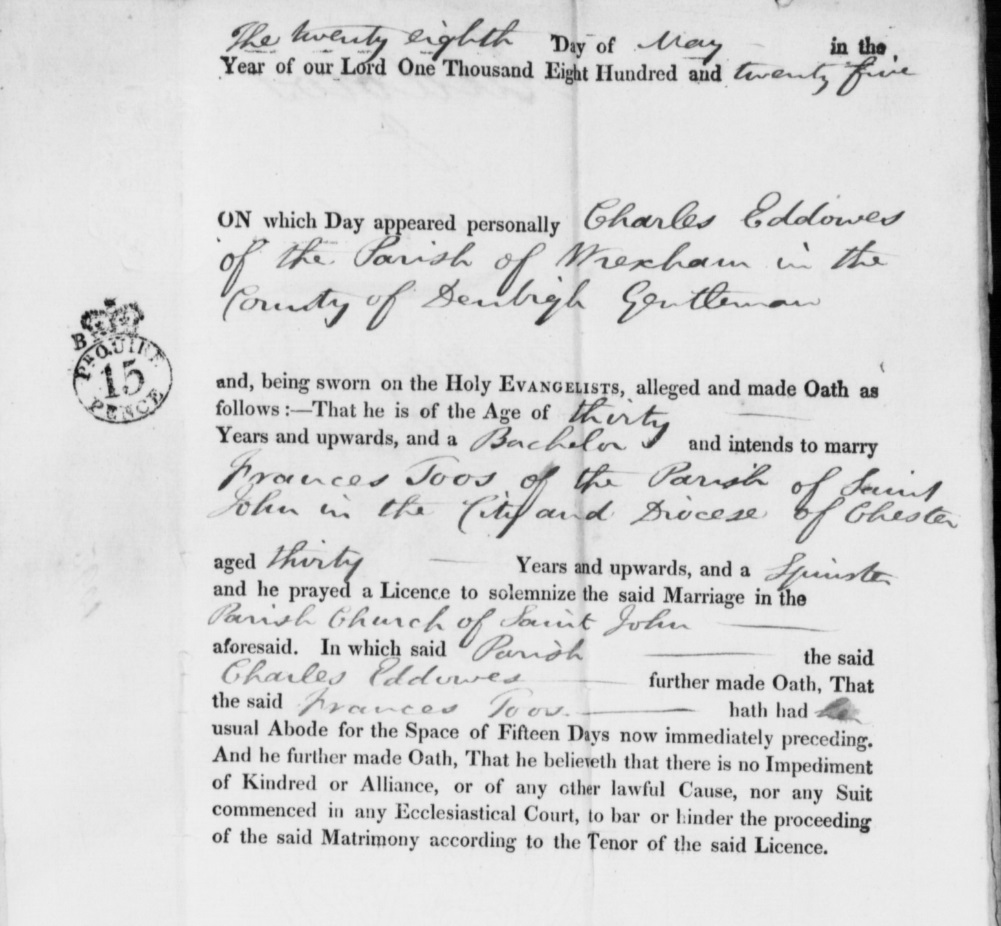 The twenty eighth Day of May in the
Year of our Lord One Thousand Eight Hundred and twenty five
ON which Day appeared personally Charles Eddowes
of the Parish of Wrexham in the
County of Denbigh Gentleman
B
PR QUIRE
15
PENCE
and, being sworn on the Holy EVANGELISTS, alleged and made Oath as
follows :—That he is of the Age of thirty
Years and upwards, and a Bachelor and intends to marry
Frances Toos of the Parish of Saint
John in the City and Diocese of Chester
aged thirty Years and upwards, and a Spinster
and he prayed a Licence to solemnize the said Marriage in the
Parish Church of Saint John
aforesaid. In which said Parish the said
Charles Eddowes further made Oath, That
the said Frances Toos hath had her
usual Abode for the Space of Fifteen Days now immediately preceding.
And he further made Oath, That he believeth that there is no Impediment
of Kindred or Alliance, or of any other lawful Cause, nor any Suit
commenced in any Ecclesiastical Court, to bar or hinder the proceeding
of the said Matrimony according to the Tenor of the said Licence.